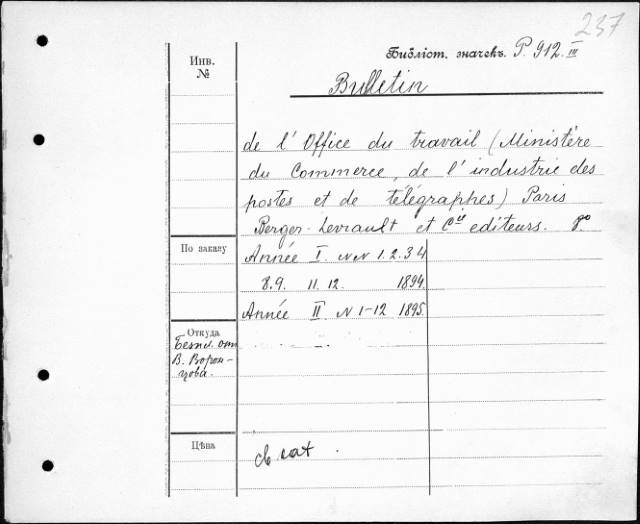 237
Библіот. значекъ. P. 912. III
Инв.
№
Bulletin
de l' Office du travail (Ministère
du Commerce, de l' industrie des
postes et de télégraphes) Paris
Berger-Levrault et Cie editeurs. 8°
По заказу
Année I. NN 1. 2. 3 4
8. 9. 11. 12. 1894.
Année II N 1-12 1895.
Откуда
Безпл. отъ
В. Ворон-
цова.
Цѣна